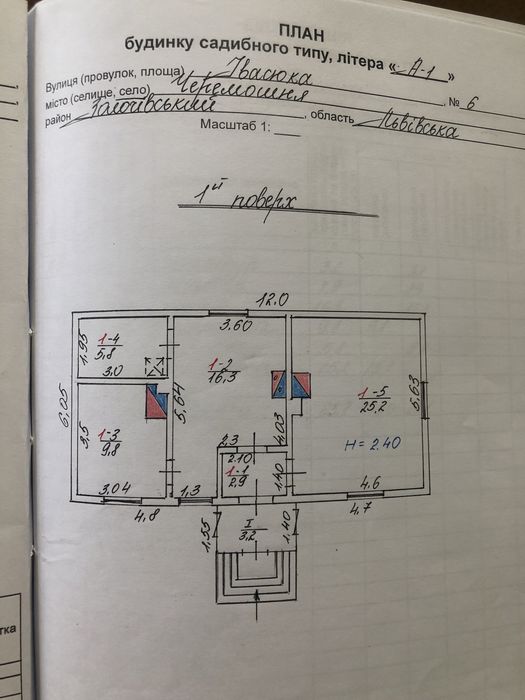 ПЛАН
будинку садибного типу, літера «А-1»
Вулиця (провулок, площа) Івасюка
місто (селище, село) Черемошня, № 6
район Золочівський, область Львівська
Масштаб 1: ___
1ий поверх
12.0
3.60
1-4
5,8
1,95
3,0
1-2
16,3
6,05
5,64
1-5
25,2
5,63
3,5
1-3
9,8
4,03
2,3
H = 2.40
2.10
1-1
2,9
1,40
3,04
1,3
4.6
4,8
4.7
1,55
I
3,2
1,40
тка